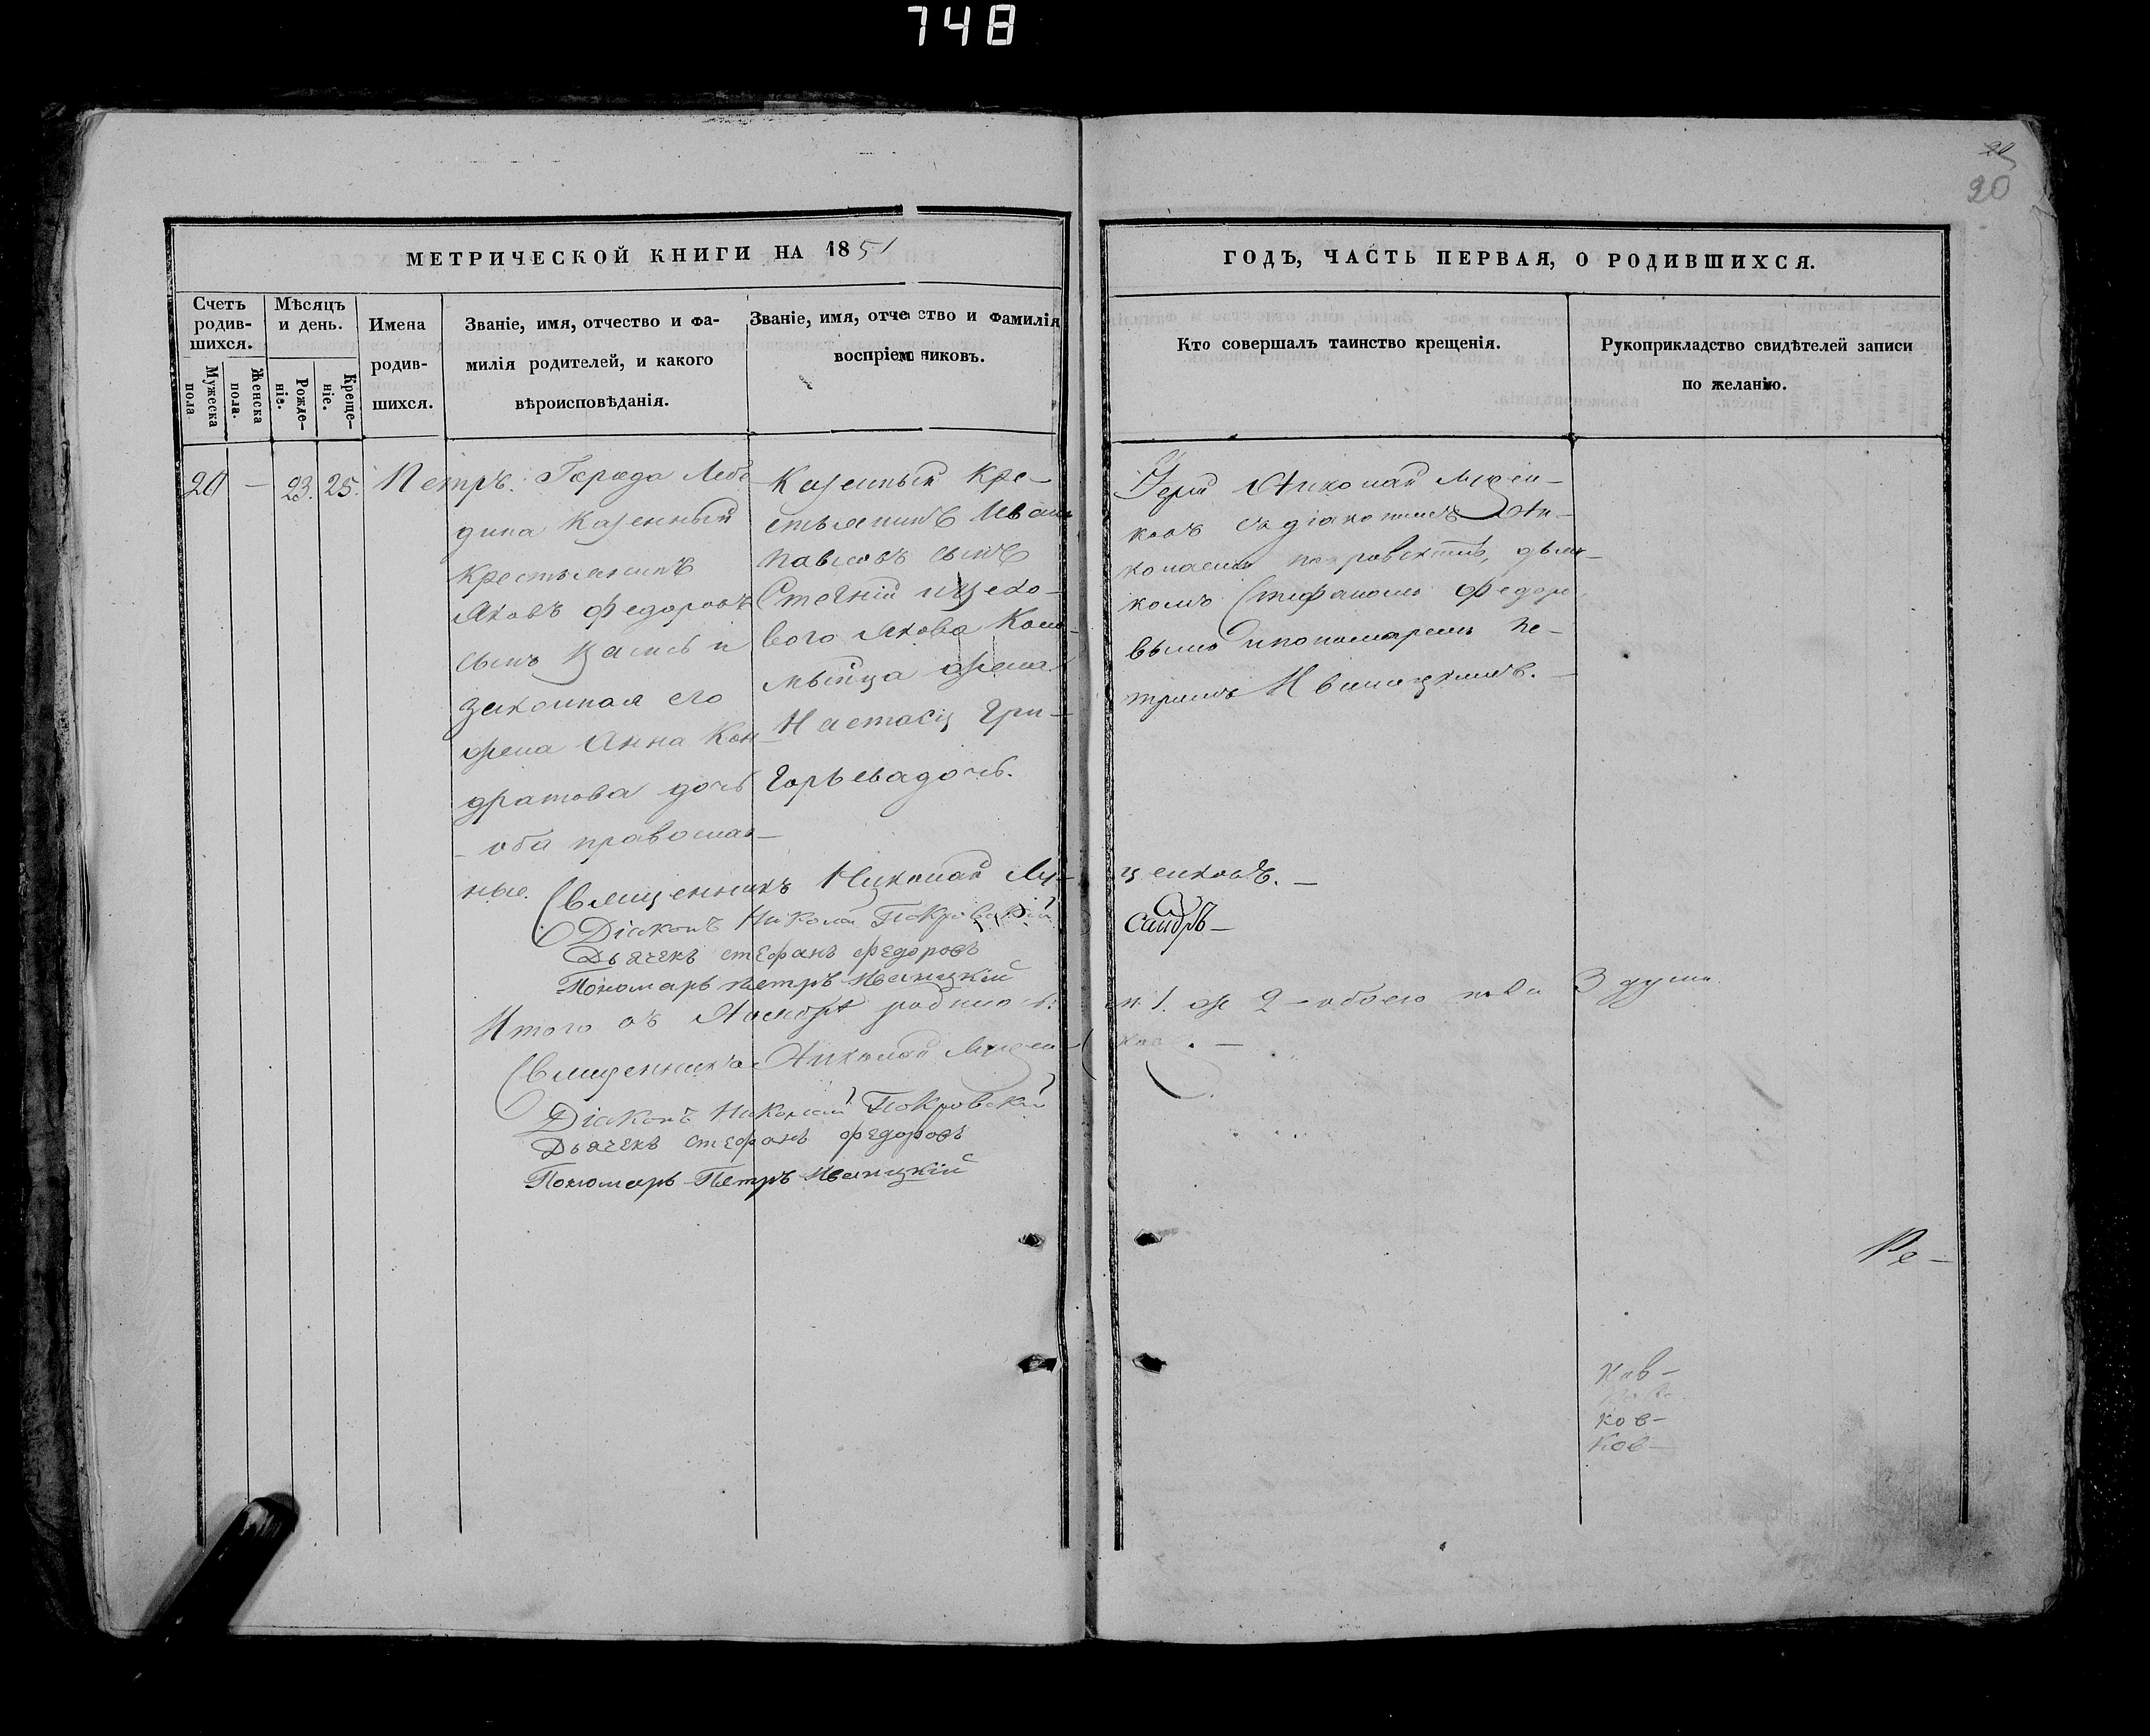 748
20
МЕТРИЧЕСКОЙ КНИГИ НА 1851
ГОДЪ, ЧАСТЬ ПЕРВАЯ, О РОДИВШИХСЯ.
Счетъ родив-шихся.
Мужеска пола
Женска пола.
Мѣсяцъ и день.
Рожде-ніе.
Креще-ніе.
Имена родив-шихся.
Званіе, имя, отчество и фа-
милія родителей, и какого
вѣроисповѣданія.
Званіе, имя, отчество и фамилія
воспріемниковъ.
Кто совершалъ таинство крещенія.
Рукоприкладство свидѣтелей записи
по желанію.
20 — 23. 25. Петръ.
Города Лебе
дина Казенный
Крестьянинъ
Яковъ Федоровъ
сынъ и
законная его
жена Анна Кон-
дратова дочь
оба православ-
ные.
Казенный Кре-
стьянинъ Иванъ
Павловъ сынъ
и цехо-
вого Якова Коло-
мыйца жена
Настасія Гри-
горьева дочь.
Іерей Николай Луцен-
ковъ съ діакономъ Ни-
колаемъ Покровскимъ, дьяч-
комъ Стефаномъ Федоро-
вымъ и пономаремъ Пе-
тромъ Иваницкимъ.
Священникъ Николай Лу-ценковъ.
Діаконъ Николай Покровскій
Дьячекъ Стефанъ Федоровъ
Пономарь Петръ Иваницкій
Итого въ м. 1. ж 2 — обоего пола 3 души.
Священникъ Николай Луцен-ковъ.
Діаконъ Николай Покровскій
Дьячекъ Стефанъ Федоровъ
Пономарь Петръ Иваницкій
Ре-
ков-
ков-